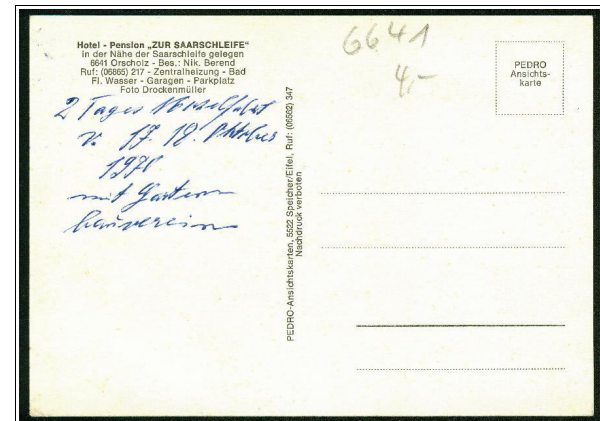 Hotel - Pension „ZUR SAARSCHLEIFE"
in der Nähe der Saarschleife gelegen
6641 Orscholz - Bes.: Nik. Berend
Ruf: (06865) 217 - Zentralheizung - Bad
Fl. Wasser - Garagen - Parkplatz
Foto Drockenmüller
2 Tages Moselfahrt
v. 17. 18. Oktober
1970
mit Garten
bauverein
6641
4,-
PEDRO
Ansichts-
karte
PEDRO-Ansichtskarten, 5522 Speicher/Eifel, Ruf: (06562) 347
Nachdruck verboten